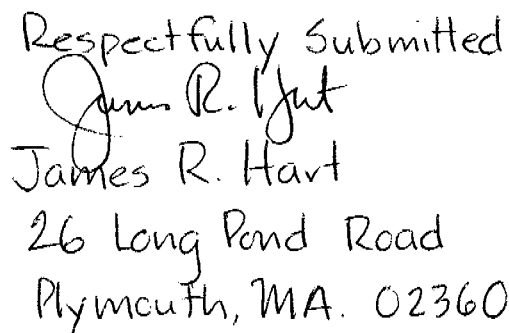 Respectfully Submitted
James R. Hart
James R. Hart
26 Long Pond Road
Plymouth, MA. 02360